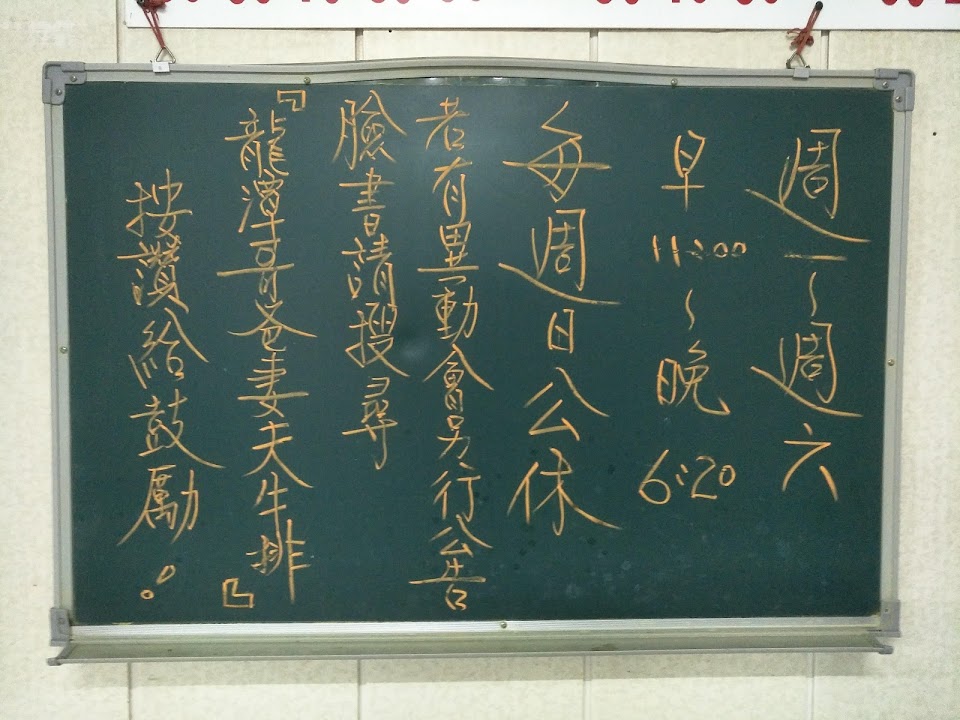 週一~週六
早11:00~晚6:20
每週日公休
若有異動會另行公告
臉書請搜尋
『龍潭哥爸妻夫牛排』
按讚給鼓勵!